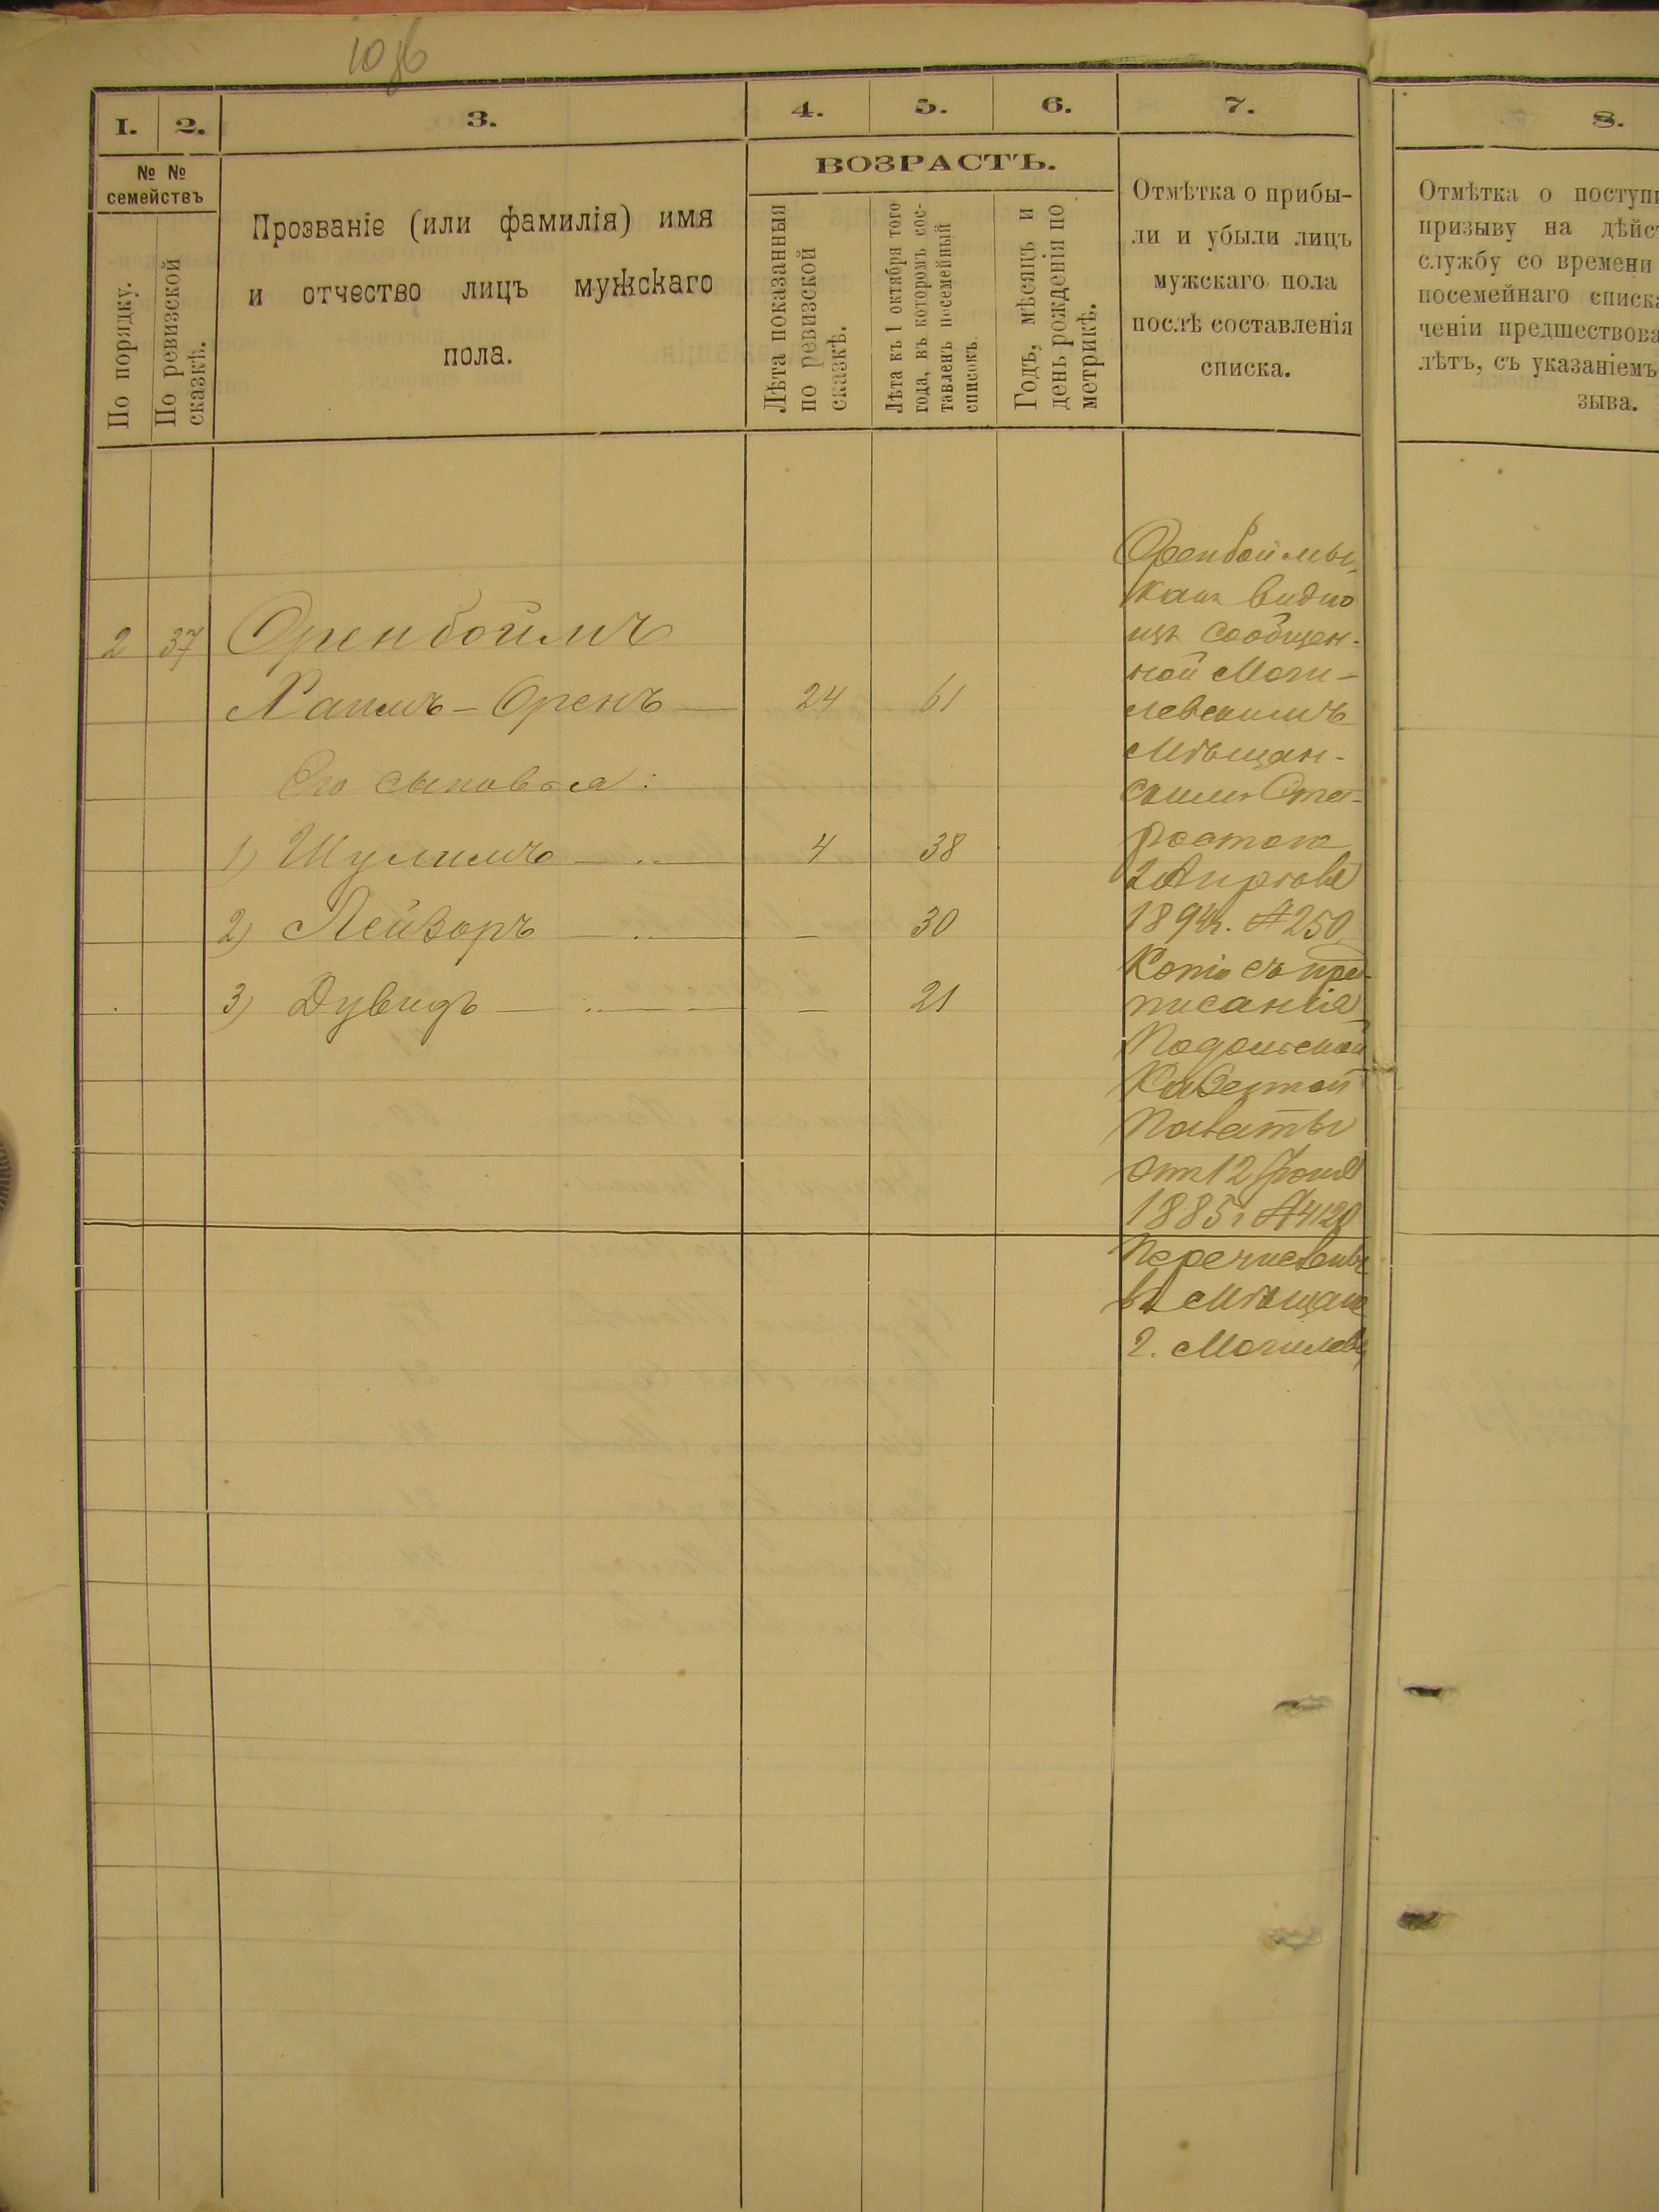 10 об
I. 2. 3. 4. 5. 6. 7. 8.
№ № семействъ
По порядку.
По ревизской сказкѣ.
Прозваніе (или фамилія) имя
и отчество лицъ мужскаго
пола.
ВОЗРАСТЪ.
Лѣта показанныя
по ревизской
сказкѣ.
Лѣта къ 1 октября того
года, въ которомъ сос-
тавленъ посемейный
списокъ.
Годъ, мѣсяцъ и
день рожденія по
метрикѣ.
Отмѣтка о прибы-
ли и убыли лицъ
мужскаго пола
послѣ составленія
списка.
Отмѣтка о поступи
призыву на дѣйст
службу со времени
посемейнаго списка
ченіи предшествова
лѣтъ, съ указаніемъ
зыва.
2 37 Оренбоймъ
Хаимъ-Оренъ 24 61
Его сыновья:
1) Шулимъ 4 38
2) Лейзоръ 30
3) Дувидъ 21
Оренбоймы,
какъ видно
изъ сообщен-
ной Моги-
левскимъ
Мѣщан-
скимъ Ста-
ростою
Апрѣля
1894г. № 250
Копіи съ пред-
писанія
Подольской
Казенной
Палаты
отъ 12 Іюня
1885г № 4120
Перечислены
въ Мѣщане
г. Могилева